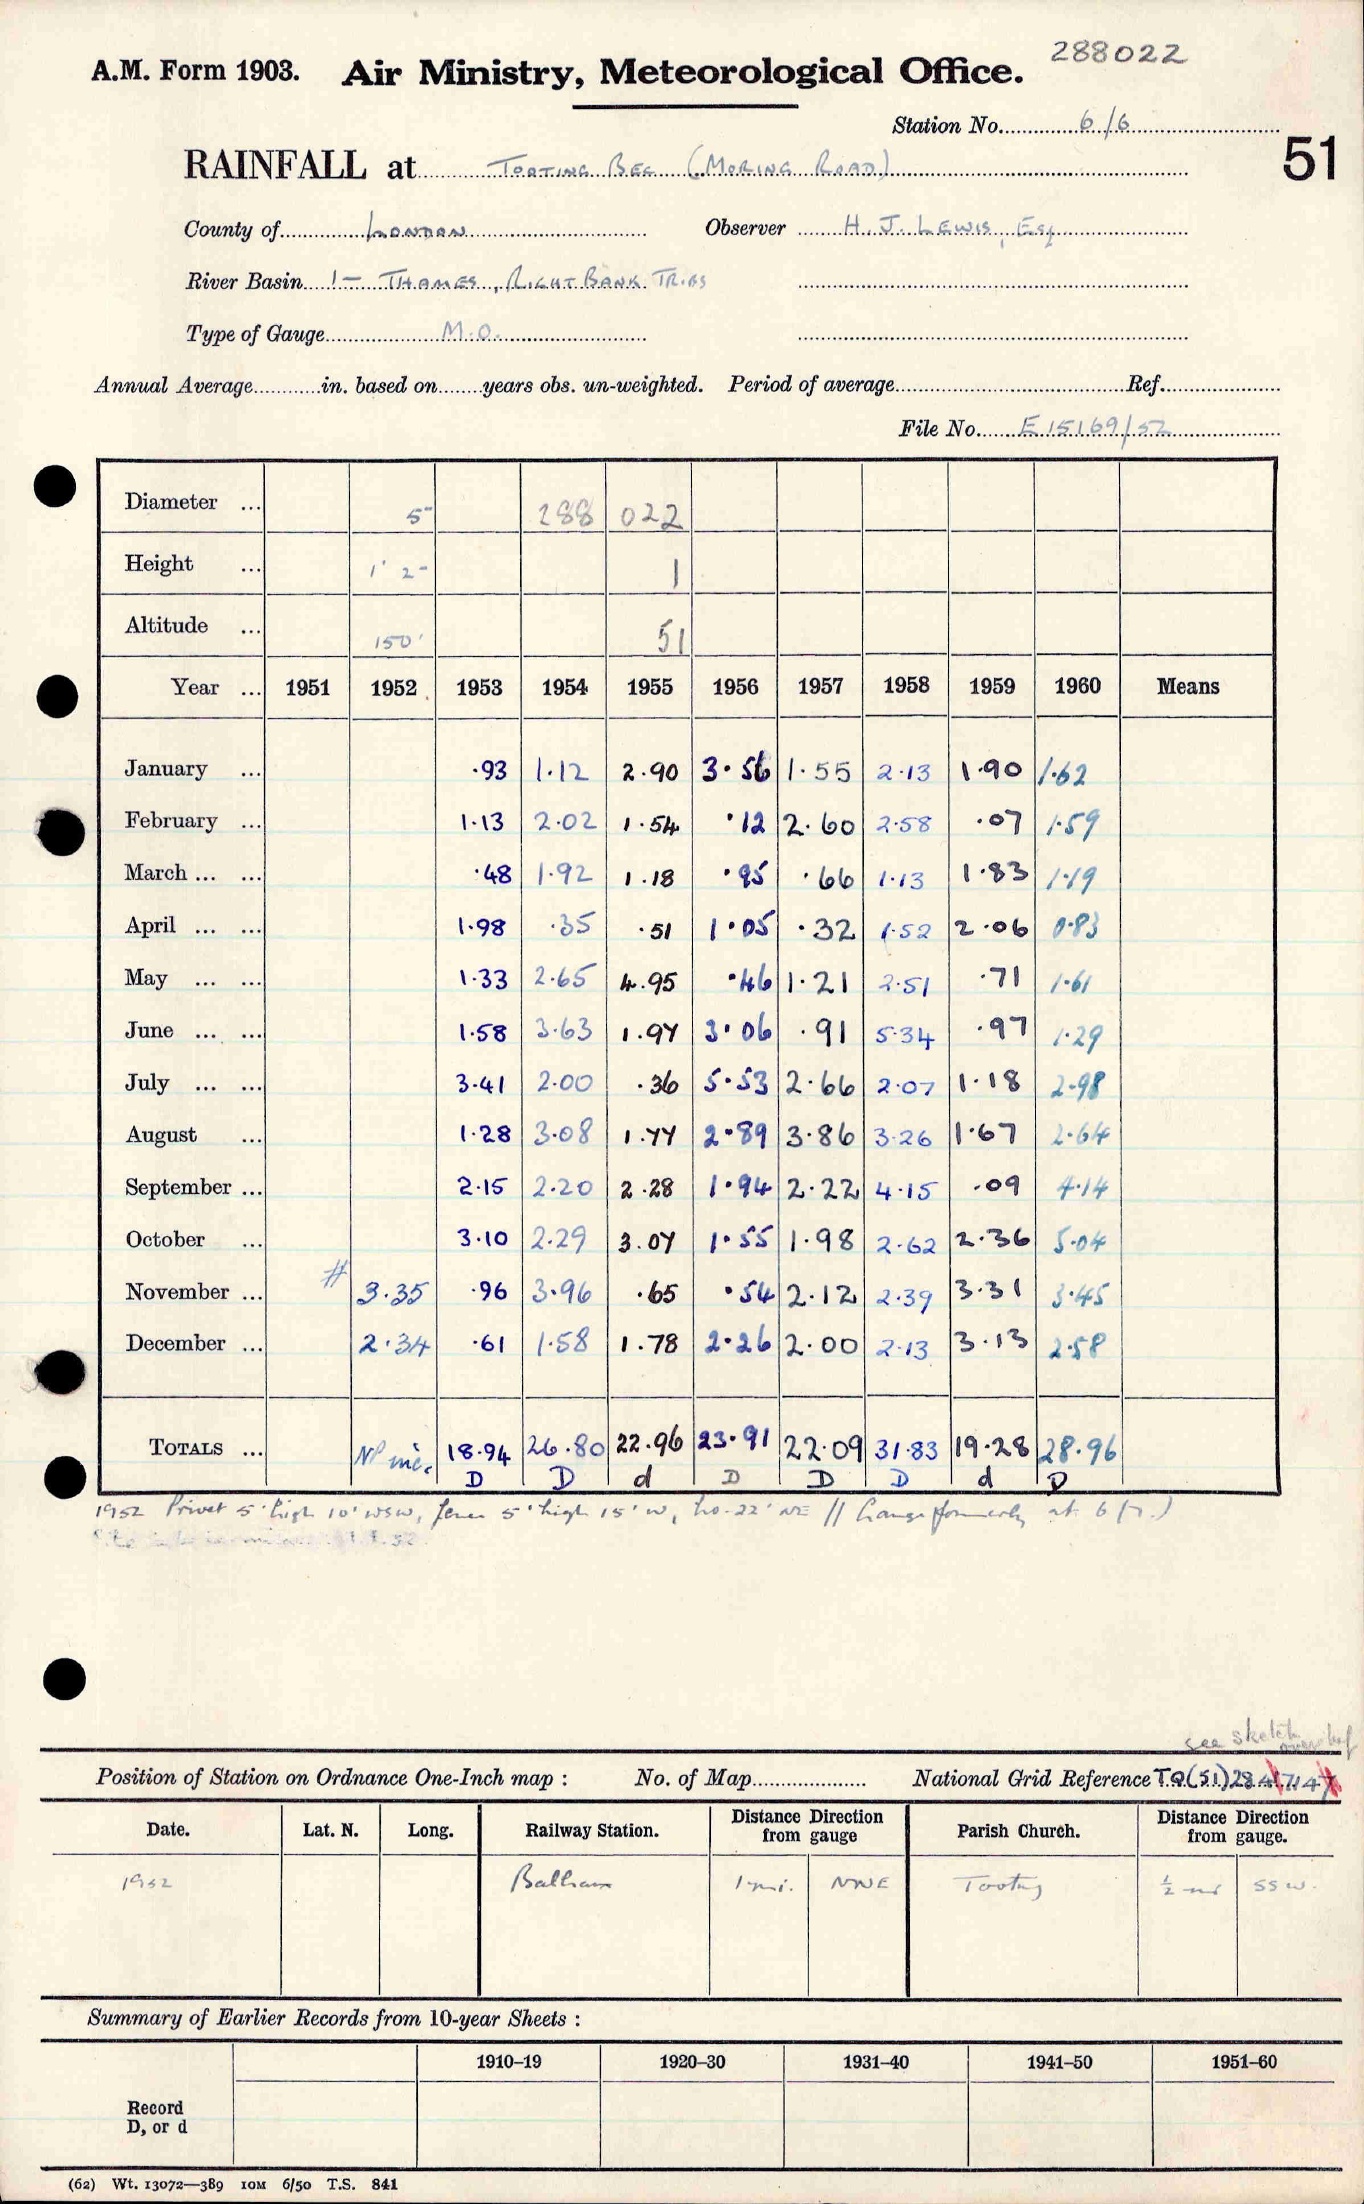 288022
A.M. Form 1903. Air Ministry, Meteorological Office.
Station No. 6/6
51
RAINFALL at TOOTING BEC (MORING ROAD)
County of LONDON Observer H. J. LEWIS, Esq
River Basin 1- THAMES, RIGHT BANK TRIBS
Type of Gauge M.O.
Annual Average in. based on years obs. un-weighted. Period of average Ref.
File No. E 15169/52
Diameter ... 5" 288 022
Height ... 1' 2" 1
Altitude ... 150' 51
Year ... 1951 1952 1953 1954 1955 1956 1957 1958 1959 1960 Means
January ... .93 1.12 2.90 3.56 1.55 2.13 1.90 1.62
February ... 1.13 2.02 1.54 .12 2.60 2.58 .07 1.59
March ... ... .48 1.92 1.18 .95 .66 1.13 1.83 1.19
April ... ... 1.98 .35 .51 1.05 .32 1.52 2.06 0.83
May ... ... 1.33 2.65 4.95 .46 1.21 2.51 .71 1.61
June ... ... 1.58 3.63 1.97 3.06 .91 5.34 .97 1.29
July ... ... 3.41 2.00 .36 5.53 2.66 2.07 1.18 2.98
August ... 1.28 3.08 1.77 2.89 3.86 3.26 1.67 2.64
September ... 2.15 2.20 2.28 1.94 2.22 4.15 .09 4.14
October ... 3.10 2.29 3.07 1.55 1.98 2.62 2.36 5.04
November ... # 3.35 .96 3.96 .65 .54 2.12 2.39 3.31 3.45
December ... 2.34 .61 1.58 1.78 2.26 2.00 2.13 3.13 2.58
TOTALS ... 18.94 26.80 22.96 23.91 22.09 31.83 19.28 28.96
D D d D D D d D
1952 Privet 5' high 10' WSW, fence 5' high 15' W, ho. 22' NE // Gauge formerly at 6/7.)
see sketch overleaf
Position of Station on Ordnance One-Inch map : No. of Map National Grid Reference TQ(51)284714
Date. Lat. N. Long. Railway Station. Distance from gauge Direction Parish Church. Distance from gauge. Direction
1952 Balham 1 mi. NNE Tooting ½ mi SSW.
Summary of Earlier Records from 10-year Sheets :
1910–19 1920–30 1931–40 1941–50 1951–60
Record
D, or d
(62) Wt. 13072—389 10M 6/50 T.S. 841